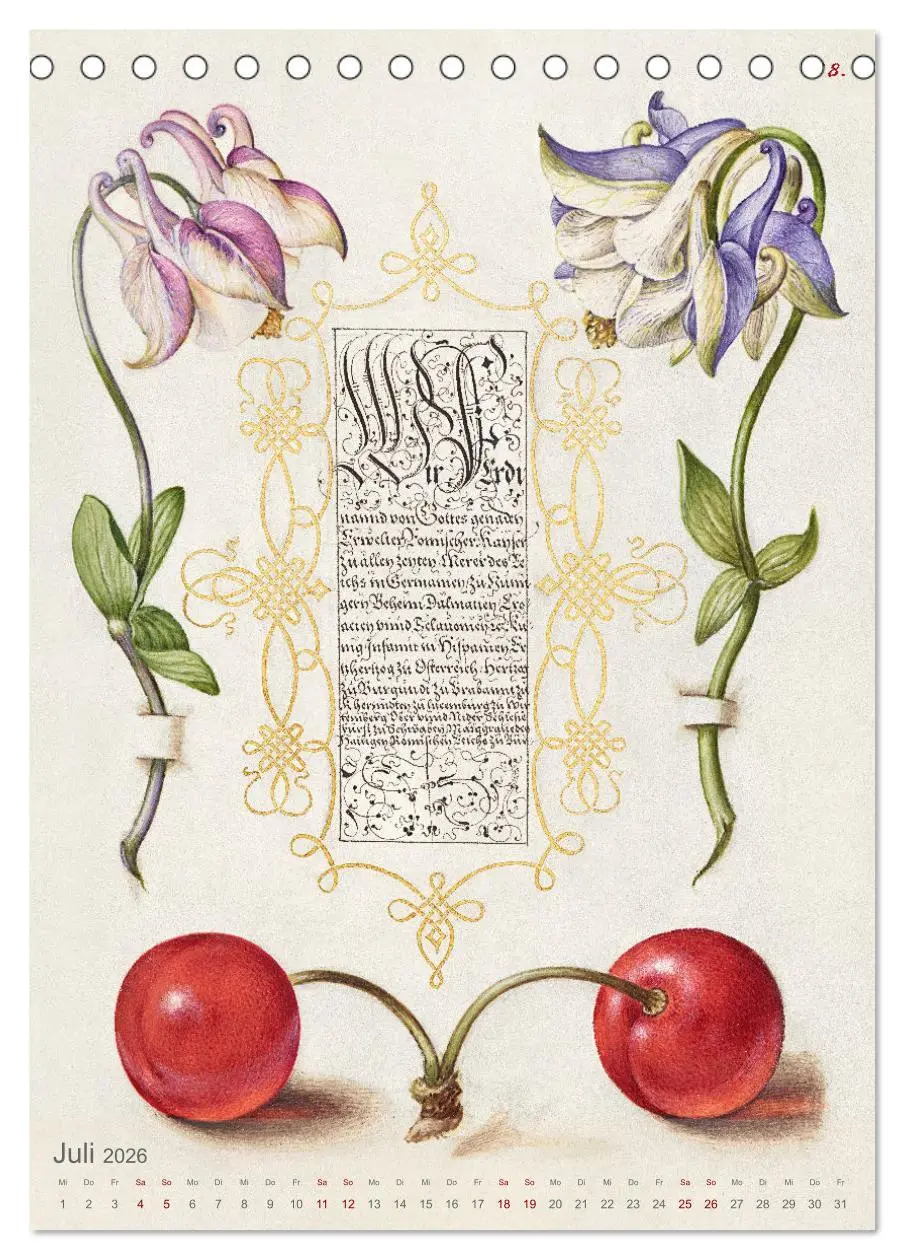 8.
Wir Ferdi
nannd von Gottes genaden
Erwelter Romischer Kayser
Zu allen zeyten Merer des Re
ichs in Germanien, zu Hun
gern Beheim Dalmatien, Cro
acien vnnd
nig Infannt in Hispanien Er
tzhertzog zu Osterreich Hertzog
zu Burgundi zu Brabannt zu
zu Lucemburg zu Wir
temberg Ober vnnd Nider Schlesie
Fürst zu Schwaben, Marggraue des
Hailigen Römischen Reichs zu Bur
Juli 2026
Mi Do Fr Sa So Mo Di Mi Do Fr Sa So Mo Di Mi Do Fr Sa So Mo Di Mi Do Fr Sa So Mo Di Mi Do Fr
1 2 3 4 5 6 7 8 9 10 11 12 13 14 15 16 17 18 19 20 21 22 23 24 25 26 27 28 29 30 31